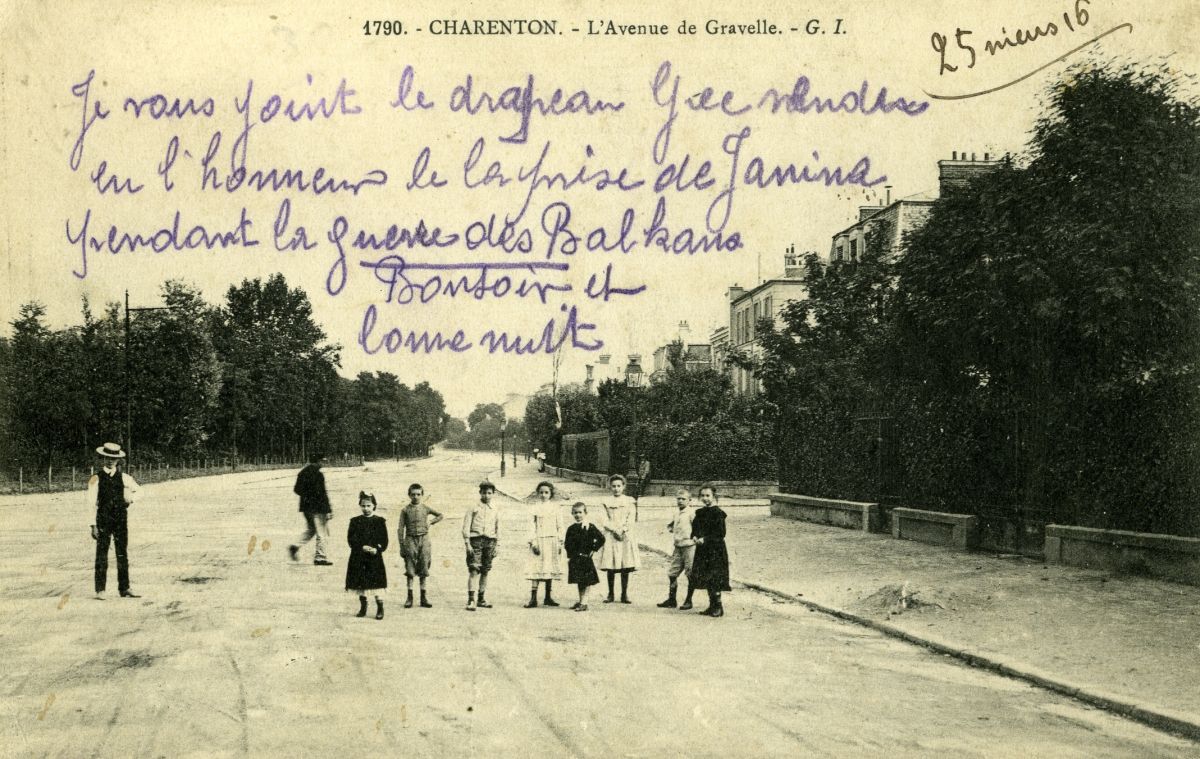 1790. - CHARENTON. - L'Avenue de Gravelle. - G. I.
25 mers 16
Je vous joint le drapeau Grec vendu
en l'honneur de la prise de Janina
pendant la guerre des Balkans
Bonsoir et
bonne nuit